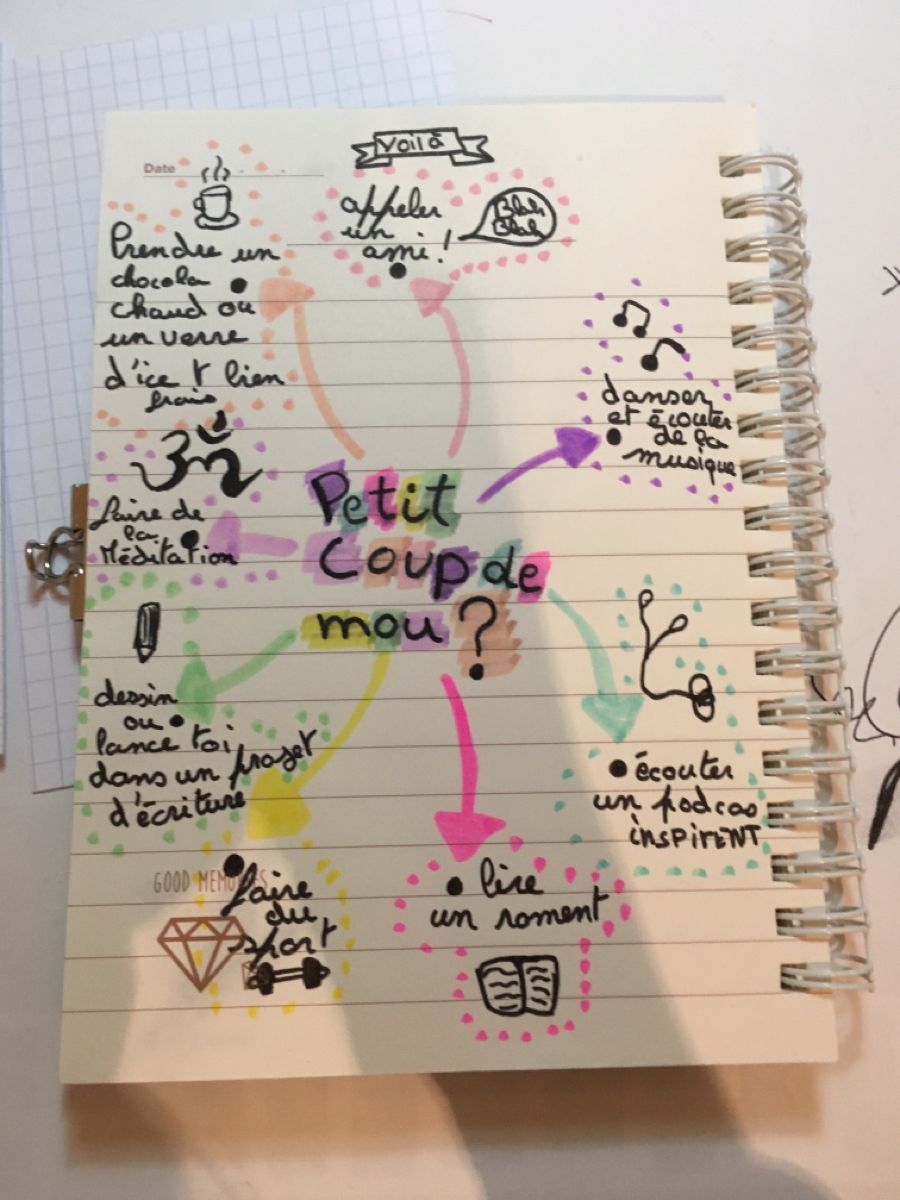 Date
voilà
appeler
un
ami !
Blah
Blah
Prendre un
chocola
chaud ou
un verre
d'ice t bien
frais
danser
et écouter
de la
musique
ॐ
faire de
la
Méditation
Petit
Coup de
mou ?
dessin
ou
lance toi
dans un projet
d'écriture
écouter
un podcas
inspirent
GOOD MEMORIES
faire
du
sport
lire
un roment